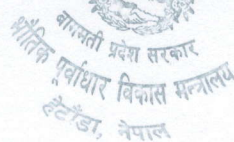 बागमती प्रदेश सरकार
भौतिक पूर्वाधार विकास मन्त्रालय
हेटौंडा, नेपाल